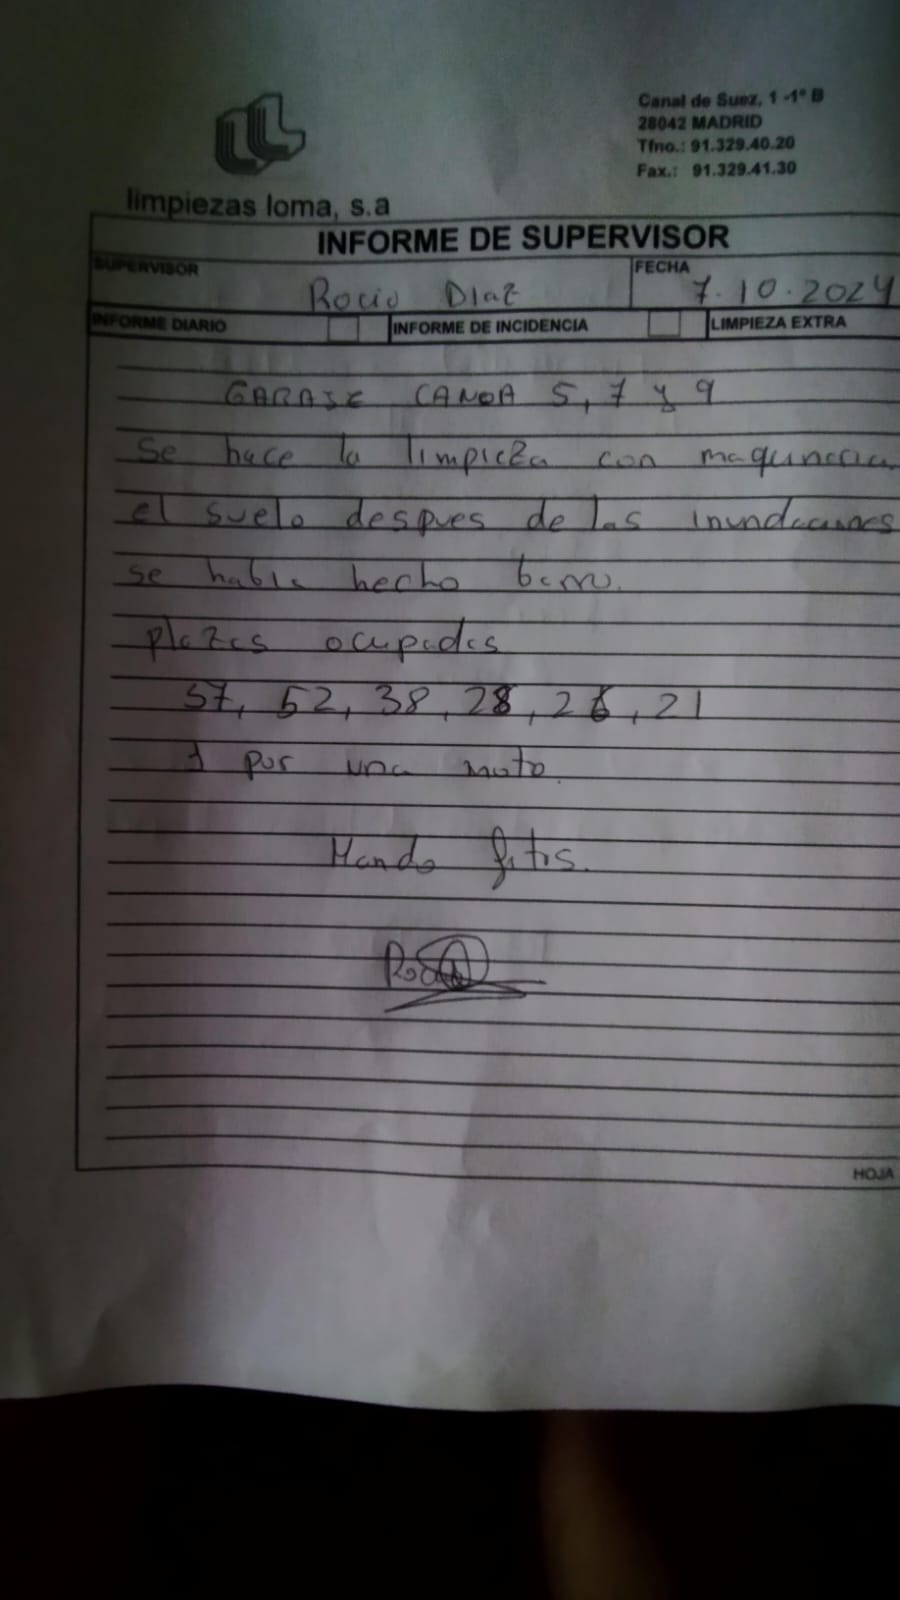 Canal de Suez, 1 -1º B
28042 MADRID
Tfno.: 91.329.40.20
Fax.: 91.329.41.30
limpiezas loma, s.a
INFORME DE SUPERVISOR
SUPERVISOR Rocio Diaz FECHA 7.10.2024
INFORME DIARIO INFORME DE INCIDENCIA LIMPIEZA EXTRA
GARAJE CANOA 5, 7 y 9
Se hace la limpieza con maquinaria
el suelo despues de las inundaciones
se habia hecho barro.
plazas ocupadas
57, 52, 38, 28, 26, 21
1 por una moto.
Mando fotos.
HOJA